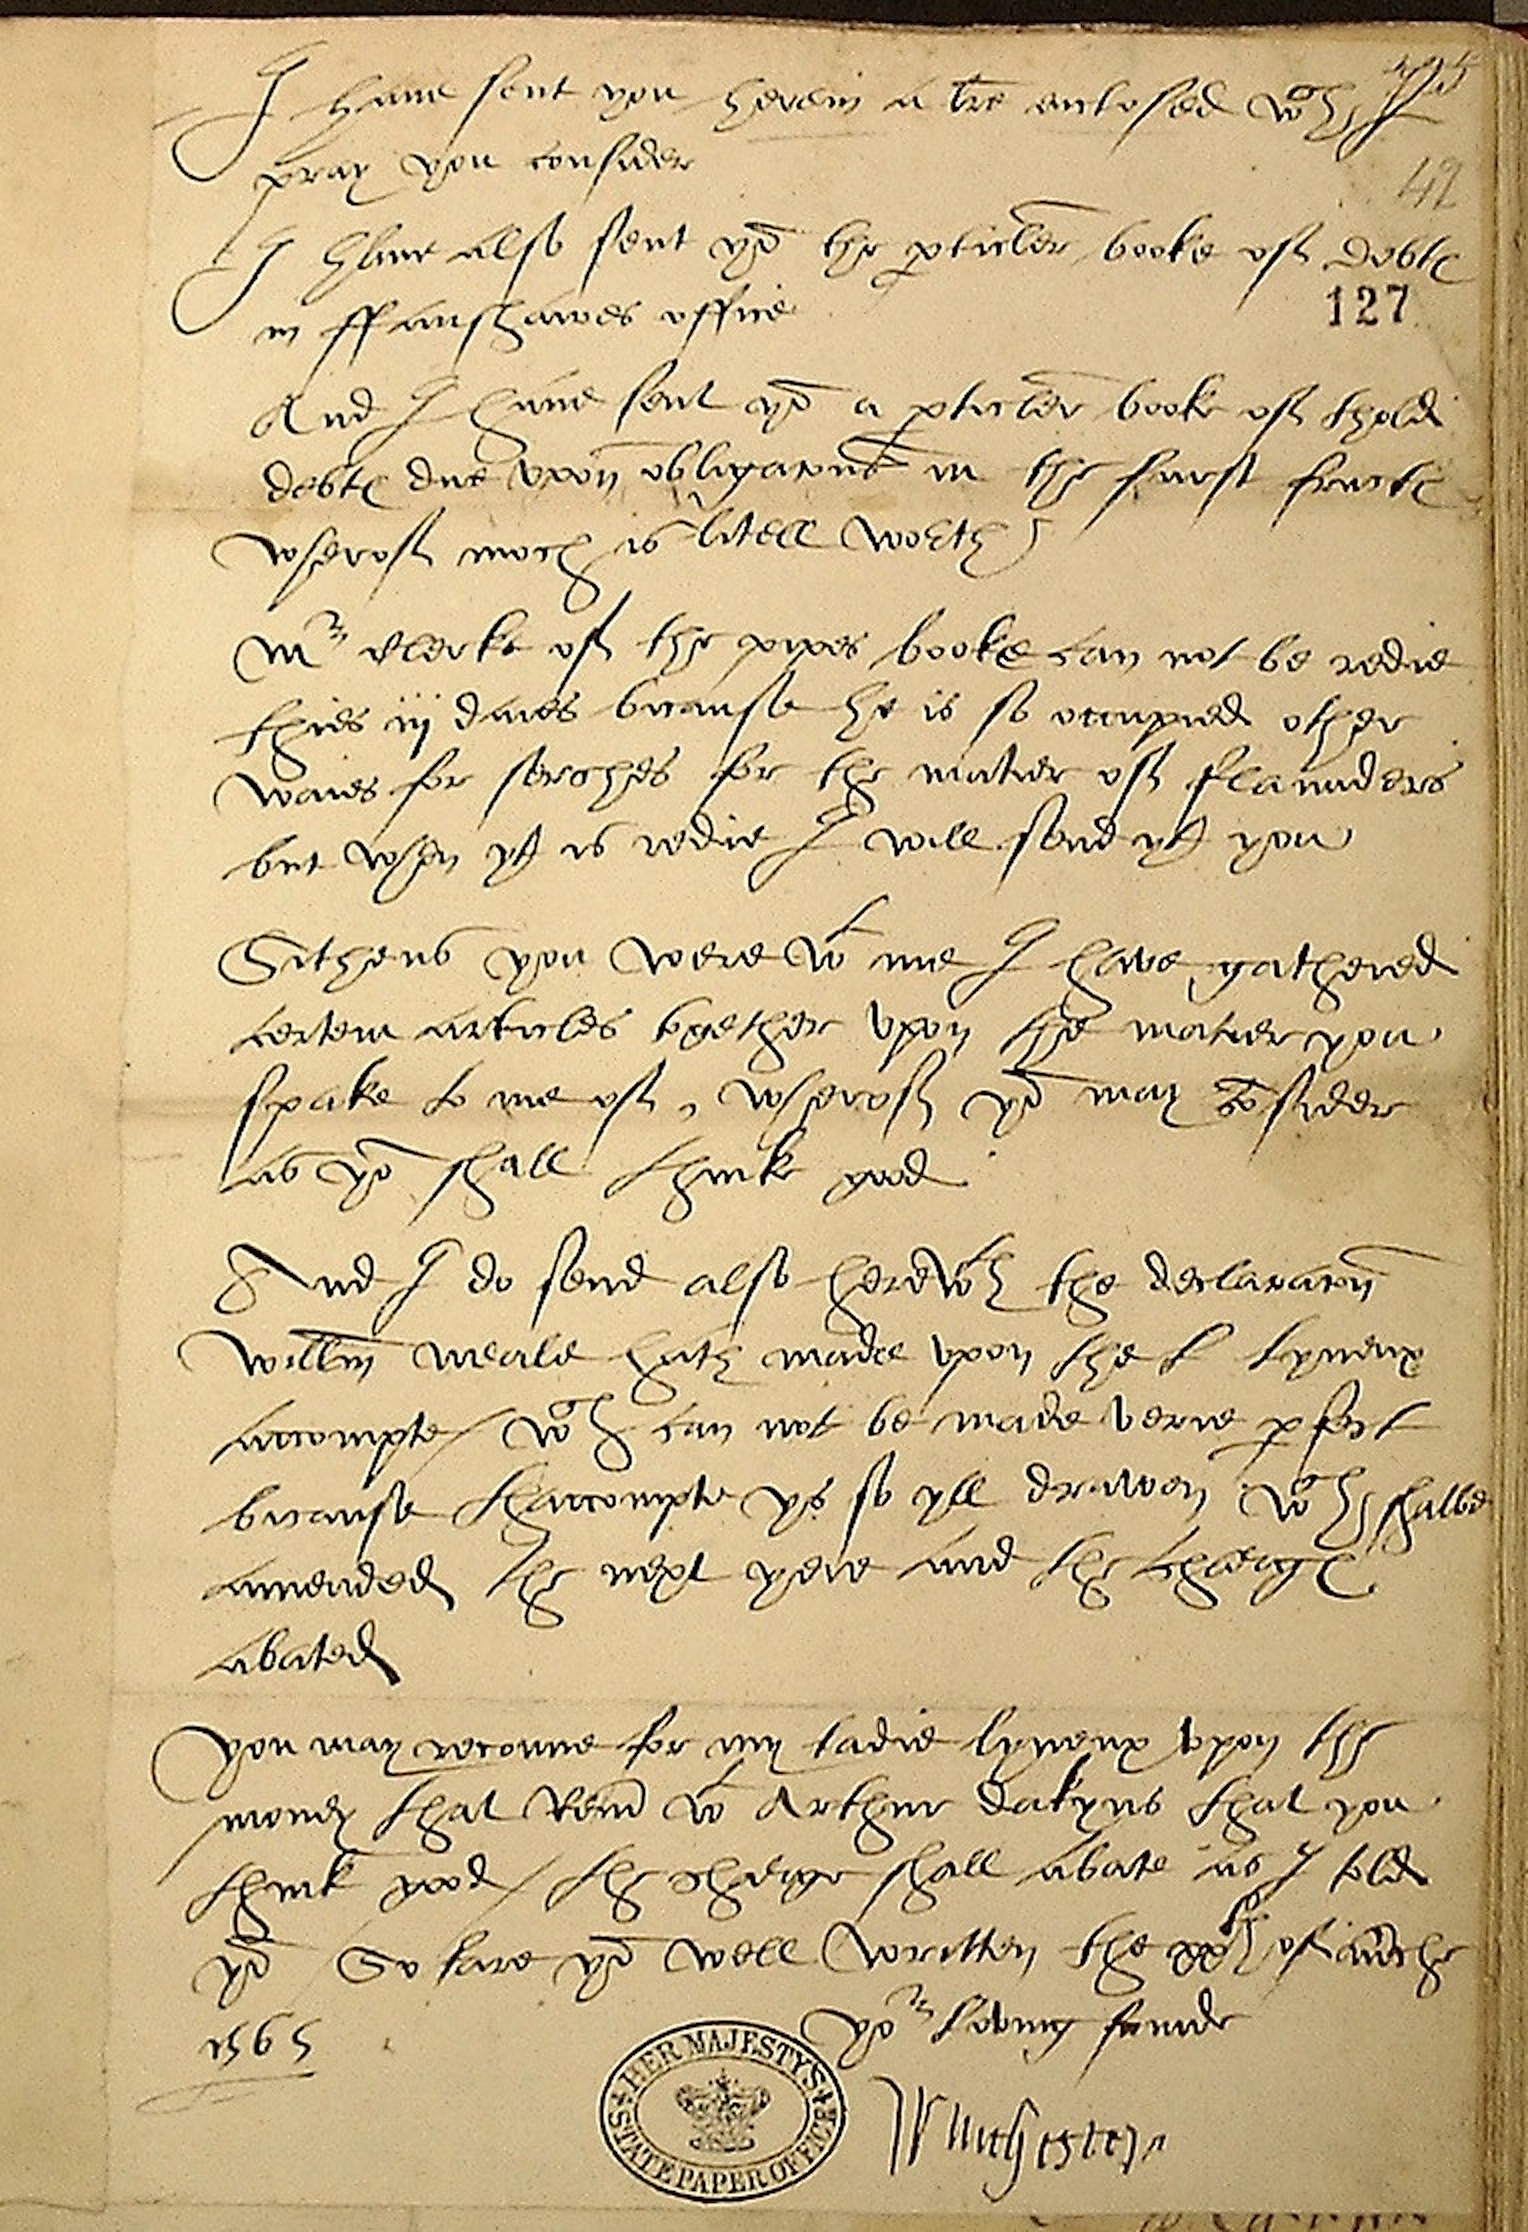 I haue sent you herein a lre enclosed wch I
pray you consider
42
I haue also sent yo the pticler booke of debtes
127
in ffanshawes office
And I haue sent yo a pticler booke of tholde
debtes due vpon obligacons in the furst fructes
wherof moch is litell worth
Mr Clerke of the pipes booke can not be redie
thies iij daies bicause he is so occupied other
waies for serches for the matier of Flaunders
but when yt is redie I will send yt you
Sithens you were wt me I haue gathered
certein articles together vpon the matier you
spake to me of, wherof yo may cosider
as yo shall think good
And I do send also herewth the declaracon
Willm Neale hath made vpon the L Lyneux
accompte / wch can not be made verie pfect
bicause thaccompte ys so yll drawen wch shalbe
amended the next yere and the charges
abated
you may recouue for my Ladie Lyneux vpon the
money that Remd wt Arthur Dakyns that you
think good / the charge shall abate as I told
yo / So fare yo well Written the xxth of
1565
yor Loving frinde
Winchester
HER MAJESTY'S STATE PAPER OFFICE